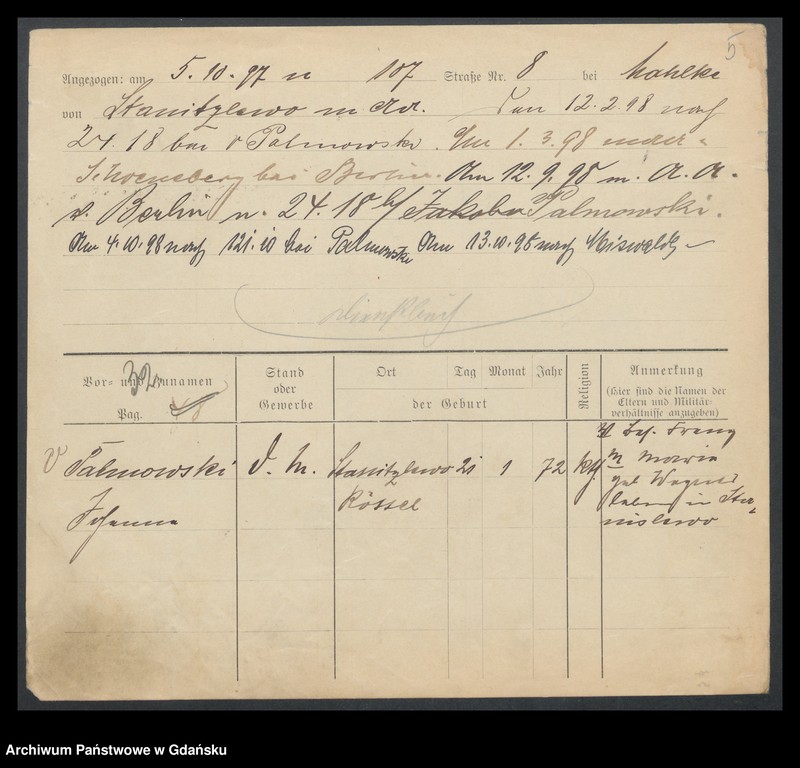 5
Angezogen: am 5.10.97 n 107 Straße Nr. 8 bei Mahlke
von Stanitzlewo m Adr. Am 12.2.98 nach
24.18 bei v Palmowski. Am 1.3.98 nach
Schoeneberg bei Berlin. Am 12.9.98 m. A. A.
v. Berlin n. 24.18 b/ Jakobu Palmowski.
Am 4.10.98 nach 121.10 bei Palmowski Am 13.10.98 nach Miswalde
Dienstbuch
Vor- und Zunamen
Pag.
32
Stand
oder
Gewerbe
Ort Tag Monat Jahr
der Geburt
Religion
Anmerkung
(Hier sind die Namen der
Eltern und Militär-
verhältnisse anzugeben)
V Palmowski
Johanna
D. M.
Stanitzlewo 21 1 72 kth.
Rössel
V Bes. Franz
M Maria
geb
leben in Sta-
nislewo
Archiwum Państwowe w Gdańsku